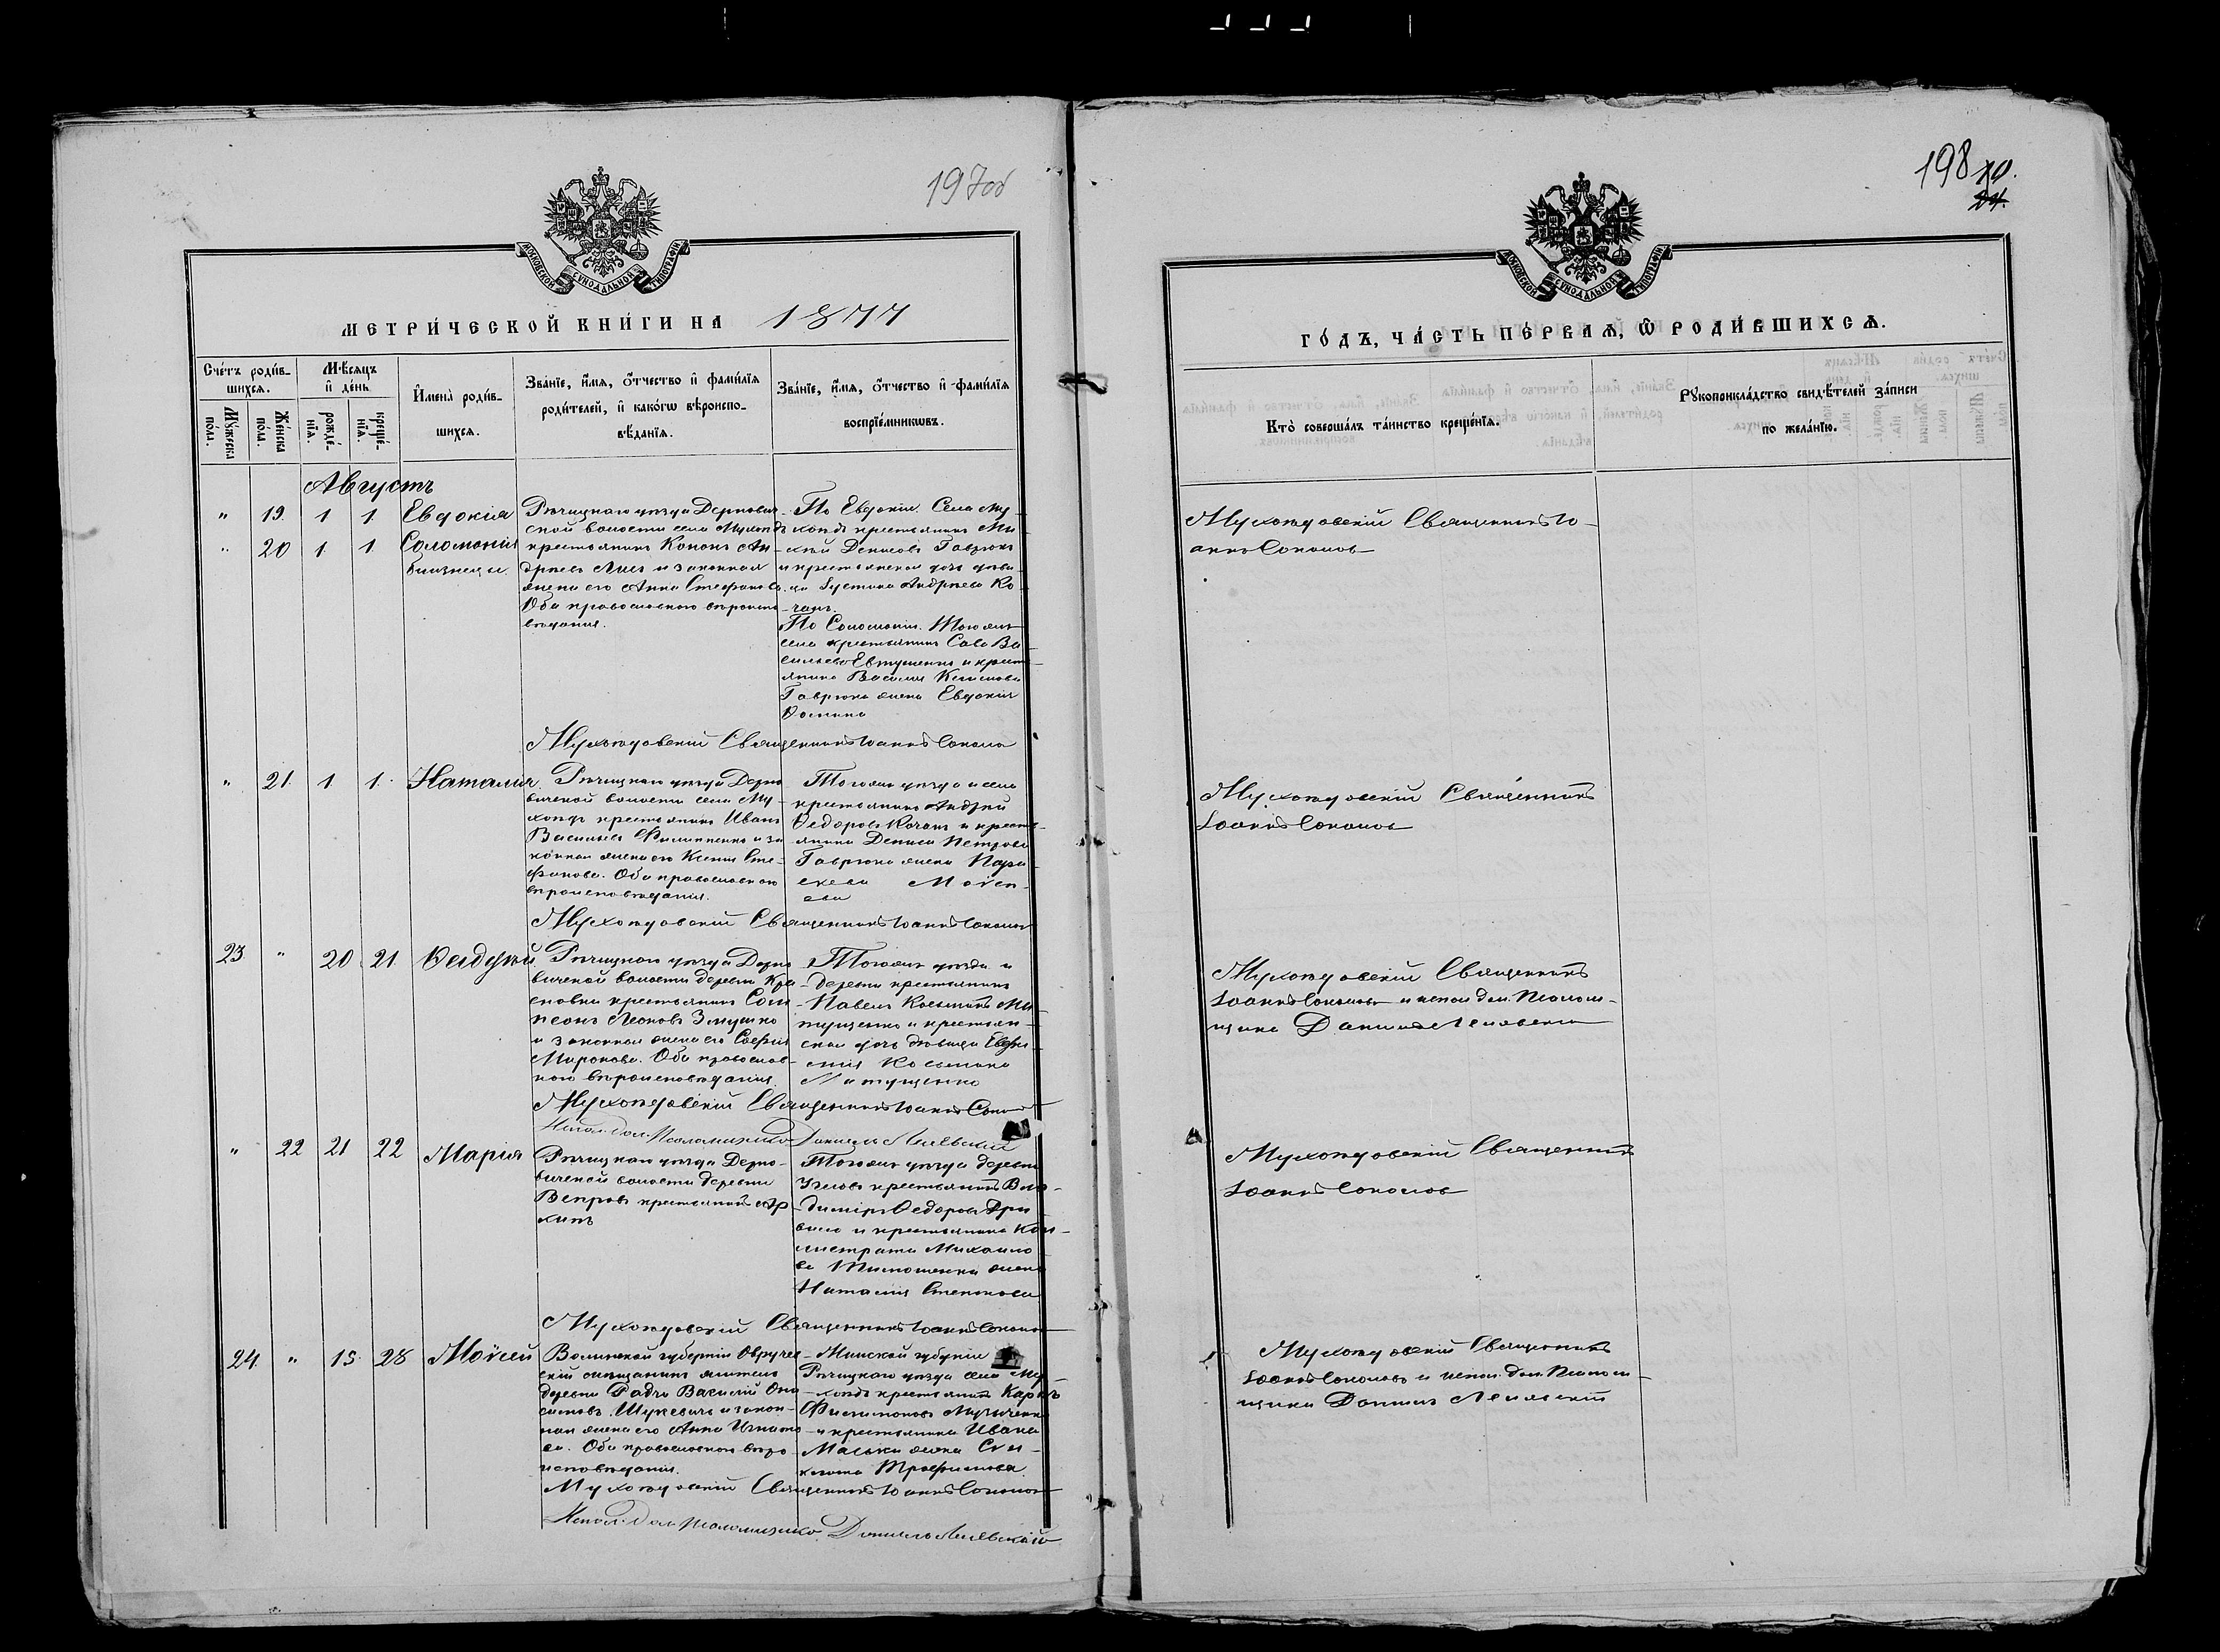 197об
198 10.
24.
МОСКОВСКОЙ СУНОДАЛЬНОЙ ТИПОГРАФIИ
МЕТРИ́ЧЕСКОЙ КНИ́ГИ НА 1877
Сче́тъ роди́в-
шихсѧ.
Мꙋ́жеска по́ла.
Же́нска по́ла.
Мѣ́сѧцъ
и҆ де́нь
рожде́-
нїѧ.
креще́-
нїѧ.
И҆мена̀ роди́в-
шихсѧ.
Зва́нїе, и҆́мѧ, ѻ҆́тчество и҆ фами́лїѧ
роди́телей, и҆ како́гѡ вѣроиспо-
вѣ́данїѧ.
Зва́нїе, и҆́мѧ, ѻ҆́тчество и҆ фами́лїѧ
воспрїе́мникѡвъ.
Августъ
" 19. 1 1. Евдокія
" 20 1. 1. Соломонія
близнецы.
Рѣчицкаго уѣзда Дернович-
ской волости села Мухоѣдъ
крестьянинъ Кононъ Ан-
дреевъ Лисъ и законная
жена его Анна Стефанова.
Оба православнаго вѣроиспо-
вѣданія.
По Евдокіи. Села Му-
хоѣдъ крестьянинъ Ми-
хѣй Денисовъ Гаврюкъ
и крестьянская дочь дѣви-
ца Іустина Андреева Ко-
чанъ.
По Соломоніи. Того же
села крестьянинъ Сава Ва-
сильевъ Евтушенко и крест-
янина Василія Климова
Гаврюка жена Евдокія
Ѳомина
Мухоѣдовскій Священникъ Іоаннъ Соколов
" 21. 1 1. Наталія
Рѣчицкаго уѣзда Дерно-
вичской волости села Му-
хоѣдъ крестьянинъ Иванъ
Васильевъ Филипенко и за-
конная жена его Ксенія Сте-
фанова. Оба православнаго
вѣроисповѣданія.
Того же уѣзда и села
крестьянинъ Андрей
Ѳедоровъ Кочанъ и кресть-
янина Дениса Петрова
Гаврюка жена Пара-
скева Моѵсе-
ева
Мухоѣдовскій Священникъ Іоаннъ Соколов
23 " 20 21.
Рѣчицкаго уѣзда Дерно-
вичской волости деревни Кра-
сновки крестьянинъ Сам-
псонъ Леоновъ Змушко
и законная жена его Софія
Миронова. Оба православ-
наго вѣроисповѣданія.
Того же уѣзда и
деревни крестьянинъ
Павелъ Косьминъ Ми-
тущенко и крестьян-
ская дочь дѣвица Евфи-
мія Косьмина
Митущенко
Мухоѣдовскій Священникъ Іоаннъ Соколов
Испол. дол. Псаломщика Даніилъ Лелявскій
" 22 21 22 Марія
Рѣчицкаго уѣзда Дерно-
вичской волости деревни
Вепровъ крестьянинъ
Того же уѣзда деревни
крестьянинъ Вла-
димиръ Ѳедоровъ
и крестьянина Кали-
истрата Михайло-
ва Тимошенки жена
Наталія Степанова
Мухоѣдовскій Священникъ Іоаннъ Соколов
24. " 15. 28 Моѵсей
Волынской губерніи Овруч-
скій мѣщанинъ житель
деревни Радчи Василій Они-
симовъ Шукевичъ и закон-
ная жена его Анна Игнато-
ва. Оба православнаго вѣро-
исповѣданія.
Минской губерніи
Рѣчицкаго уѣзда села Му-
хоѣдъ крестьянинъ Карпъ
Филимоновъ Музыченко
и крестьянина Ивана
жена Сти-
Трофимова.
Мухоѣдовскій Священникъ Іоаннъ Соколов
Испол. дол. Псаломщика Даніилъ Лелявскій
МОСКОВСКОЙ СУНОДАЛЬНОЙ ТИПОГРАФIИ
ГО́ДЪ, ЧА́СТЬ ПЕ́РВАѦ, Ѽ РОДИ́ВШИХСѦ.
Кто̀ соверша́лъ та́инство креще́нїѧ.
Рꙋкоприкла́дство свидѣ́телей за́писи
по жела́нїю.
Мухоѣдовскій Священникъ Іо-
аннъ Соколов
Мухоѣдовскій Священникъ
Іоаннъ Соколов
Мухоѣдовскій Священникъ
Іоаннъ Соколовъ и испол. дол. Псалом-
щика Даніилъ Лелявскій
Мухоѣдовскій Священникъ
Іоаннъ Соколов
Мухоѣдовскій Священникъ
Іоаннъ Соколовъ и испол. дол. Псалом-
щика Даніилъ Лелявскій